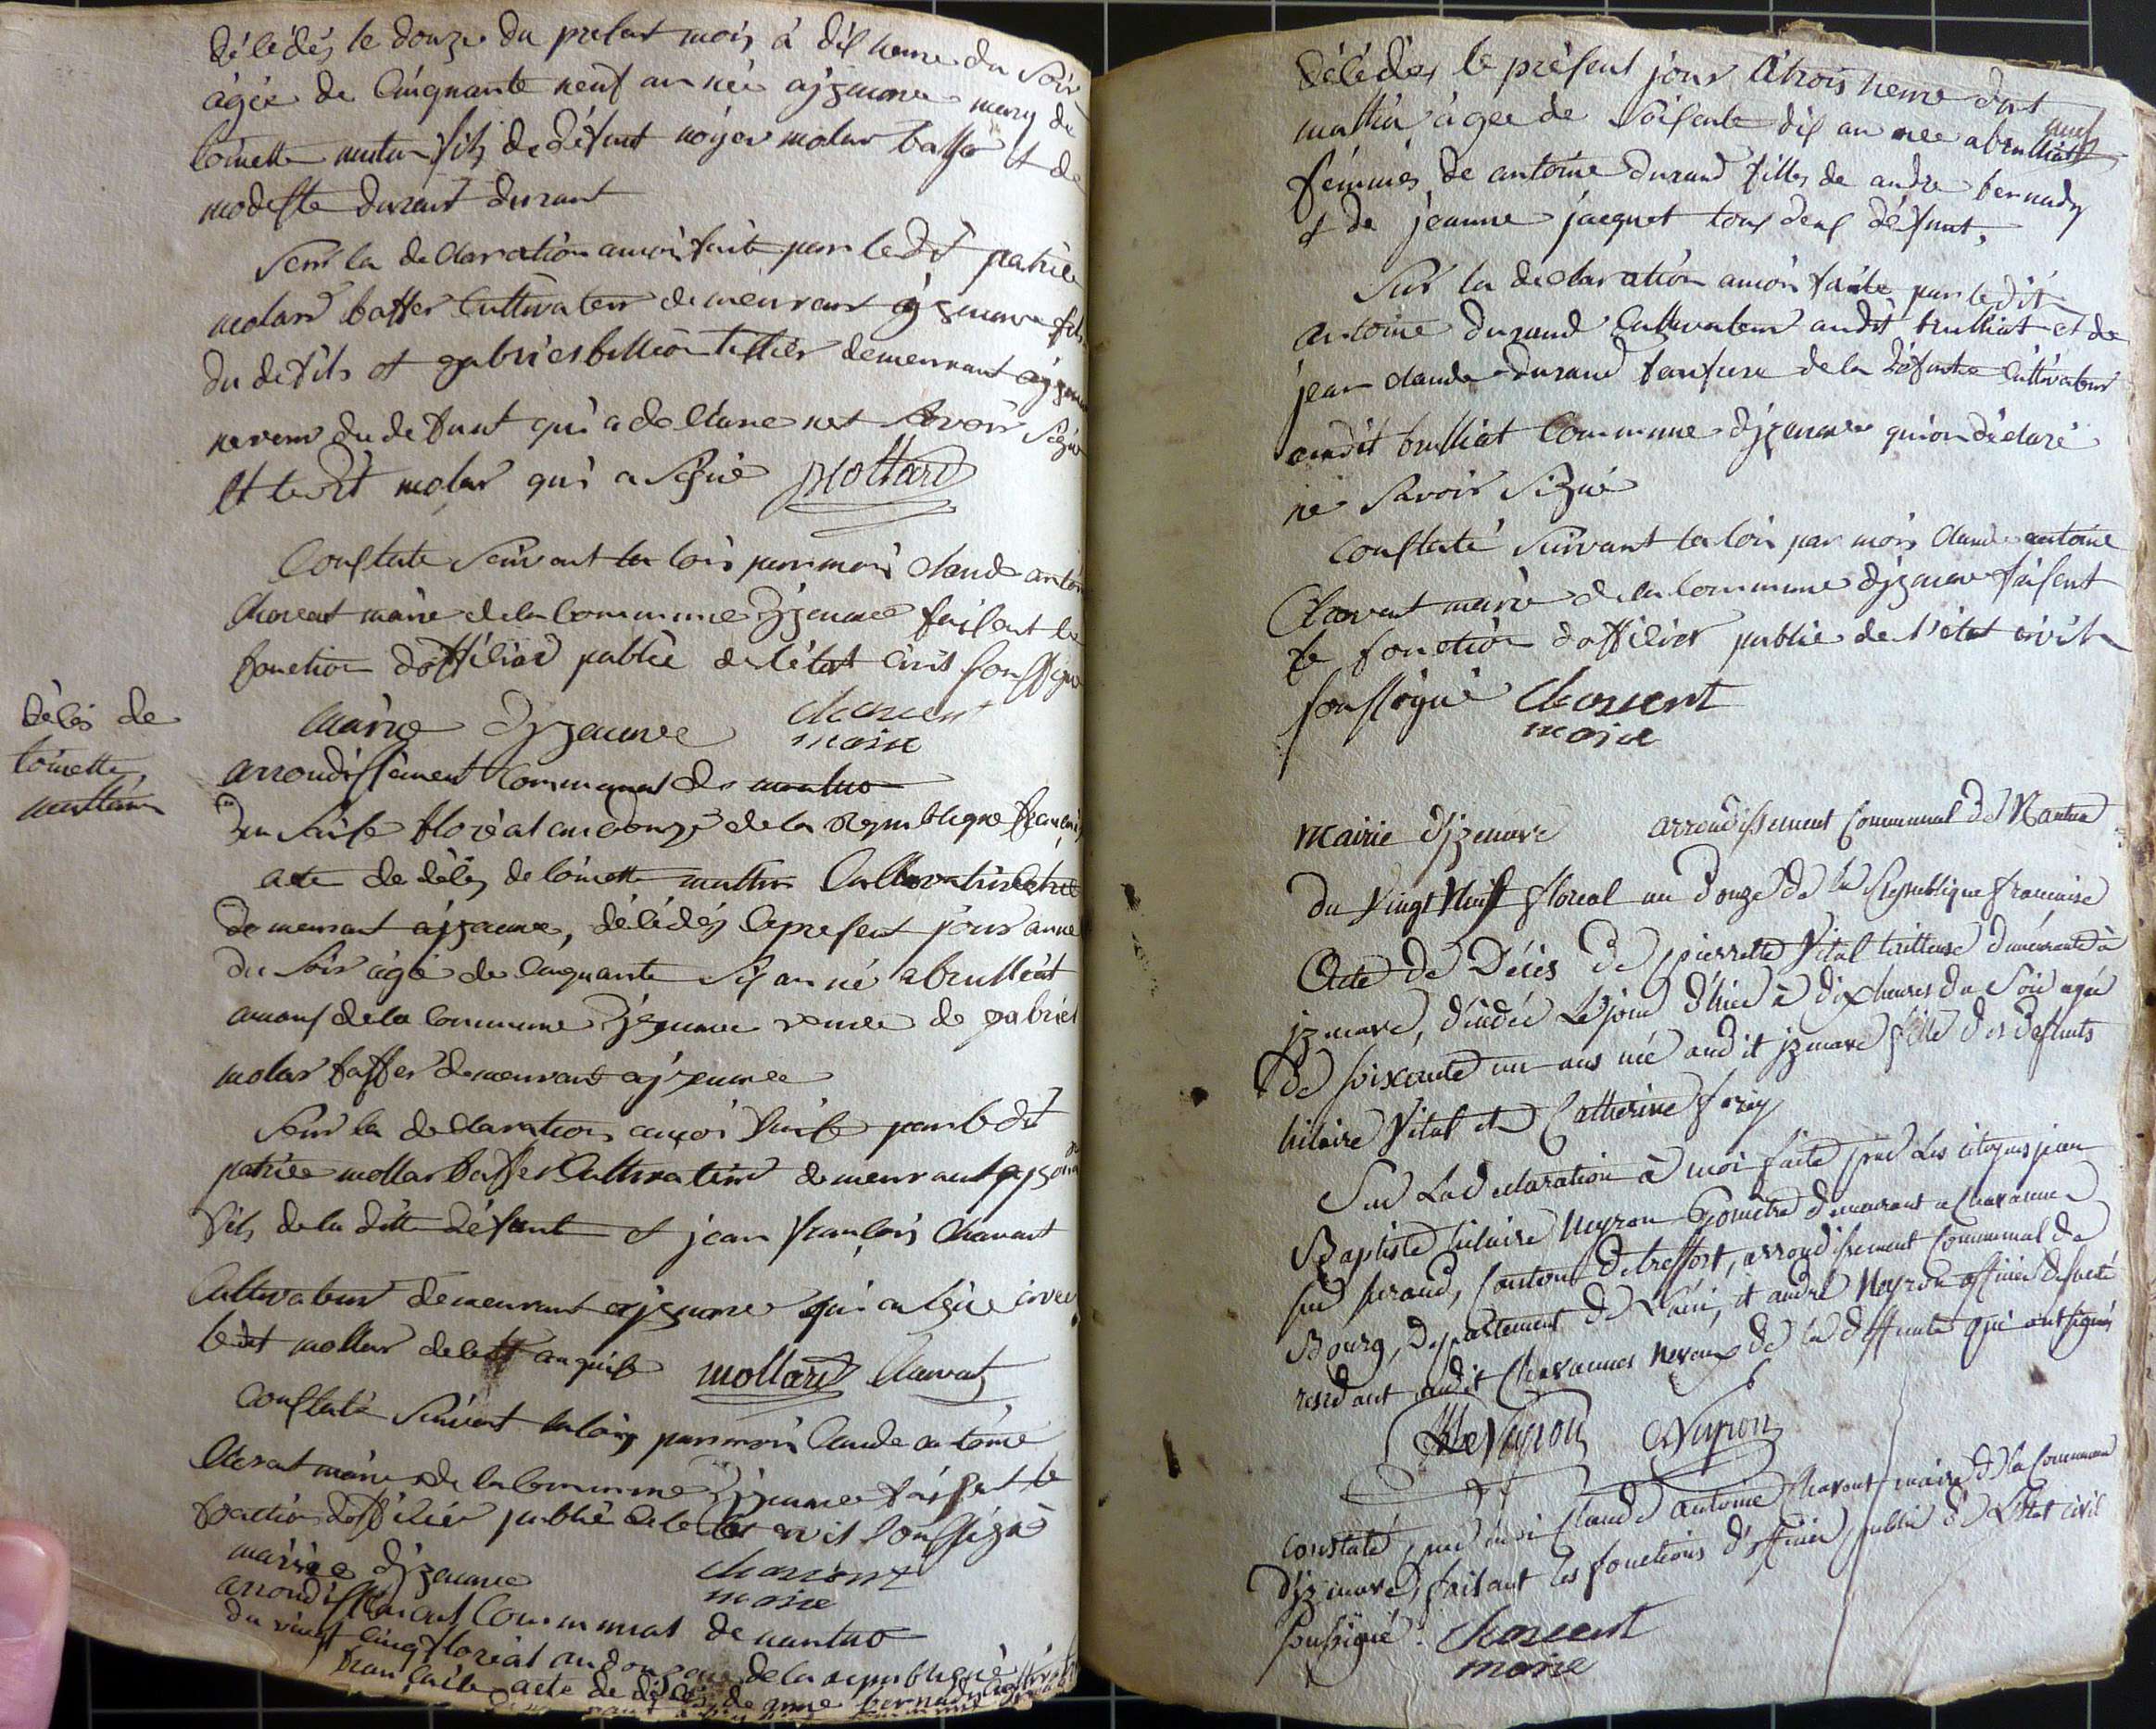 décédés le douze du presant mois à dis heure du soir
agée de cinquante neuf an née ajzeunave mary de
toinette fils de défunt molar baffer et de
modeste durant durant
seur la declaration amoi faite par le dit patrice
molard baffer cultivateur demeurant a jzeunave fils
du defils et gabriel billion tessier demeurant
neveux du defunt qui a declare net savoir signe
et le dit molar qui a signé Mollard
constate suivant la lois par moi claude antoine
chavent maire de la commune djzenave faisent le
fonction d'officier public de l'état civil soussigne
décès de
toinette
mairie djzenave chavent
maire
arrondissement communal de nantua
du saise floréal an douze de la republique francaise
acte de décès de toinette cultivatrice
demeurant ajzenave, décédés le present jours
du soir agé de cinquante sis an né a brulliat
de la commune djzenave veuve de gabriel
molar baffer demeurant ajzenave
seur la declaration amoi faite par le dit
patrice mollar baffer cultivateur demeurant ajzenave
fils de la ditte défunt et jean françois chavant
cultivateur demeurant ajzenave qui a signé avec
ledit mollar mollard chavent
constaté suivent la lois par moi claude antoine
chavent maire de la commune djzenave faisent le
fonction dofficier public de letat civil soussigné
mairie djzenave chavent
maire
arrondissement communal de nantua
du vingt cinq floréal an douze de la republique
francaise acte de décès de anne bernady
décédés le présent jour a trois heure du
mattin agée de soisente dis an née a brulliat
fémmes de antoine durand filles de andre bernady
et de jeanne jacquet tous deus défunt,
sur la declaration amoi faite par ledit
antoine durand cultivateur audit brulliat et de
jean claude durand de la défunte cultivateur
audit brulliat commune djzenave qui on déclaré
ne savoir signé
constaté suivant la lois par mois claude antoine
chavent maire de la commune djzenave faisent
le fonction dofficier public de l'état civil
soussigné chavent
maire
mairie djzenave arrondissement communal de Nantua
du vingt Neuf floreal an douze de la Republique francaise
Acte de Décès de pierrette Vital tailleuse demeurante à
jzenave, décédée le jour d'hier à dix heures du soir agée
de soixante un ans née audit jzenave fille des defunts
hilaire Vital et Catherine
Sur la déclaration à moi faite par les citoyens jean
Baptiste hilaire Neyron Géomètre demeurant a Chavannes
sur suran, Canton de treffort, arrondissement communal de
Bourg, département de l'ain, et andré Neyron officier de santé
residant audit Chavannes neveux de la deffunte qui ont signés
Neyron Neyron
constaté, par moi Claude antoine Chavent maire de la Commune
djzenave, faisant les fonctions d'officier public de l'Etat civil
soussigné. chavent
maire